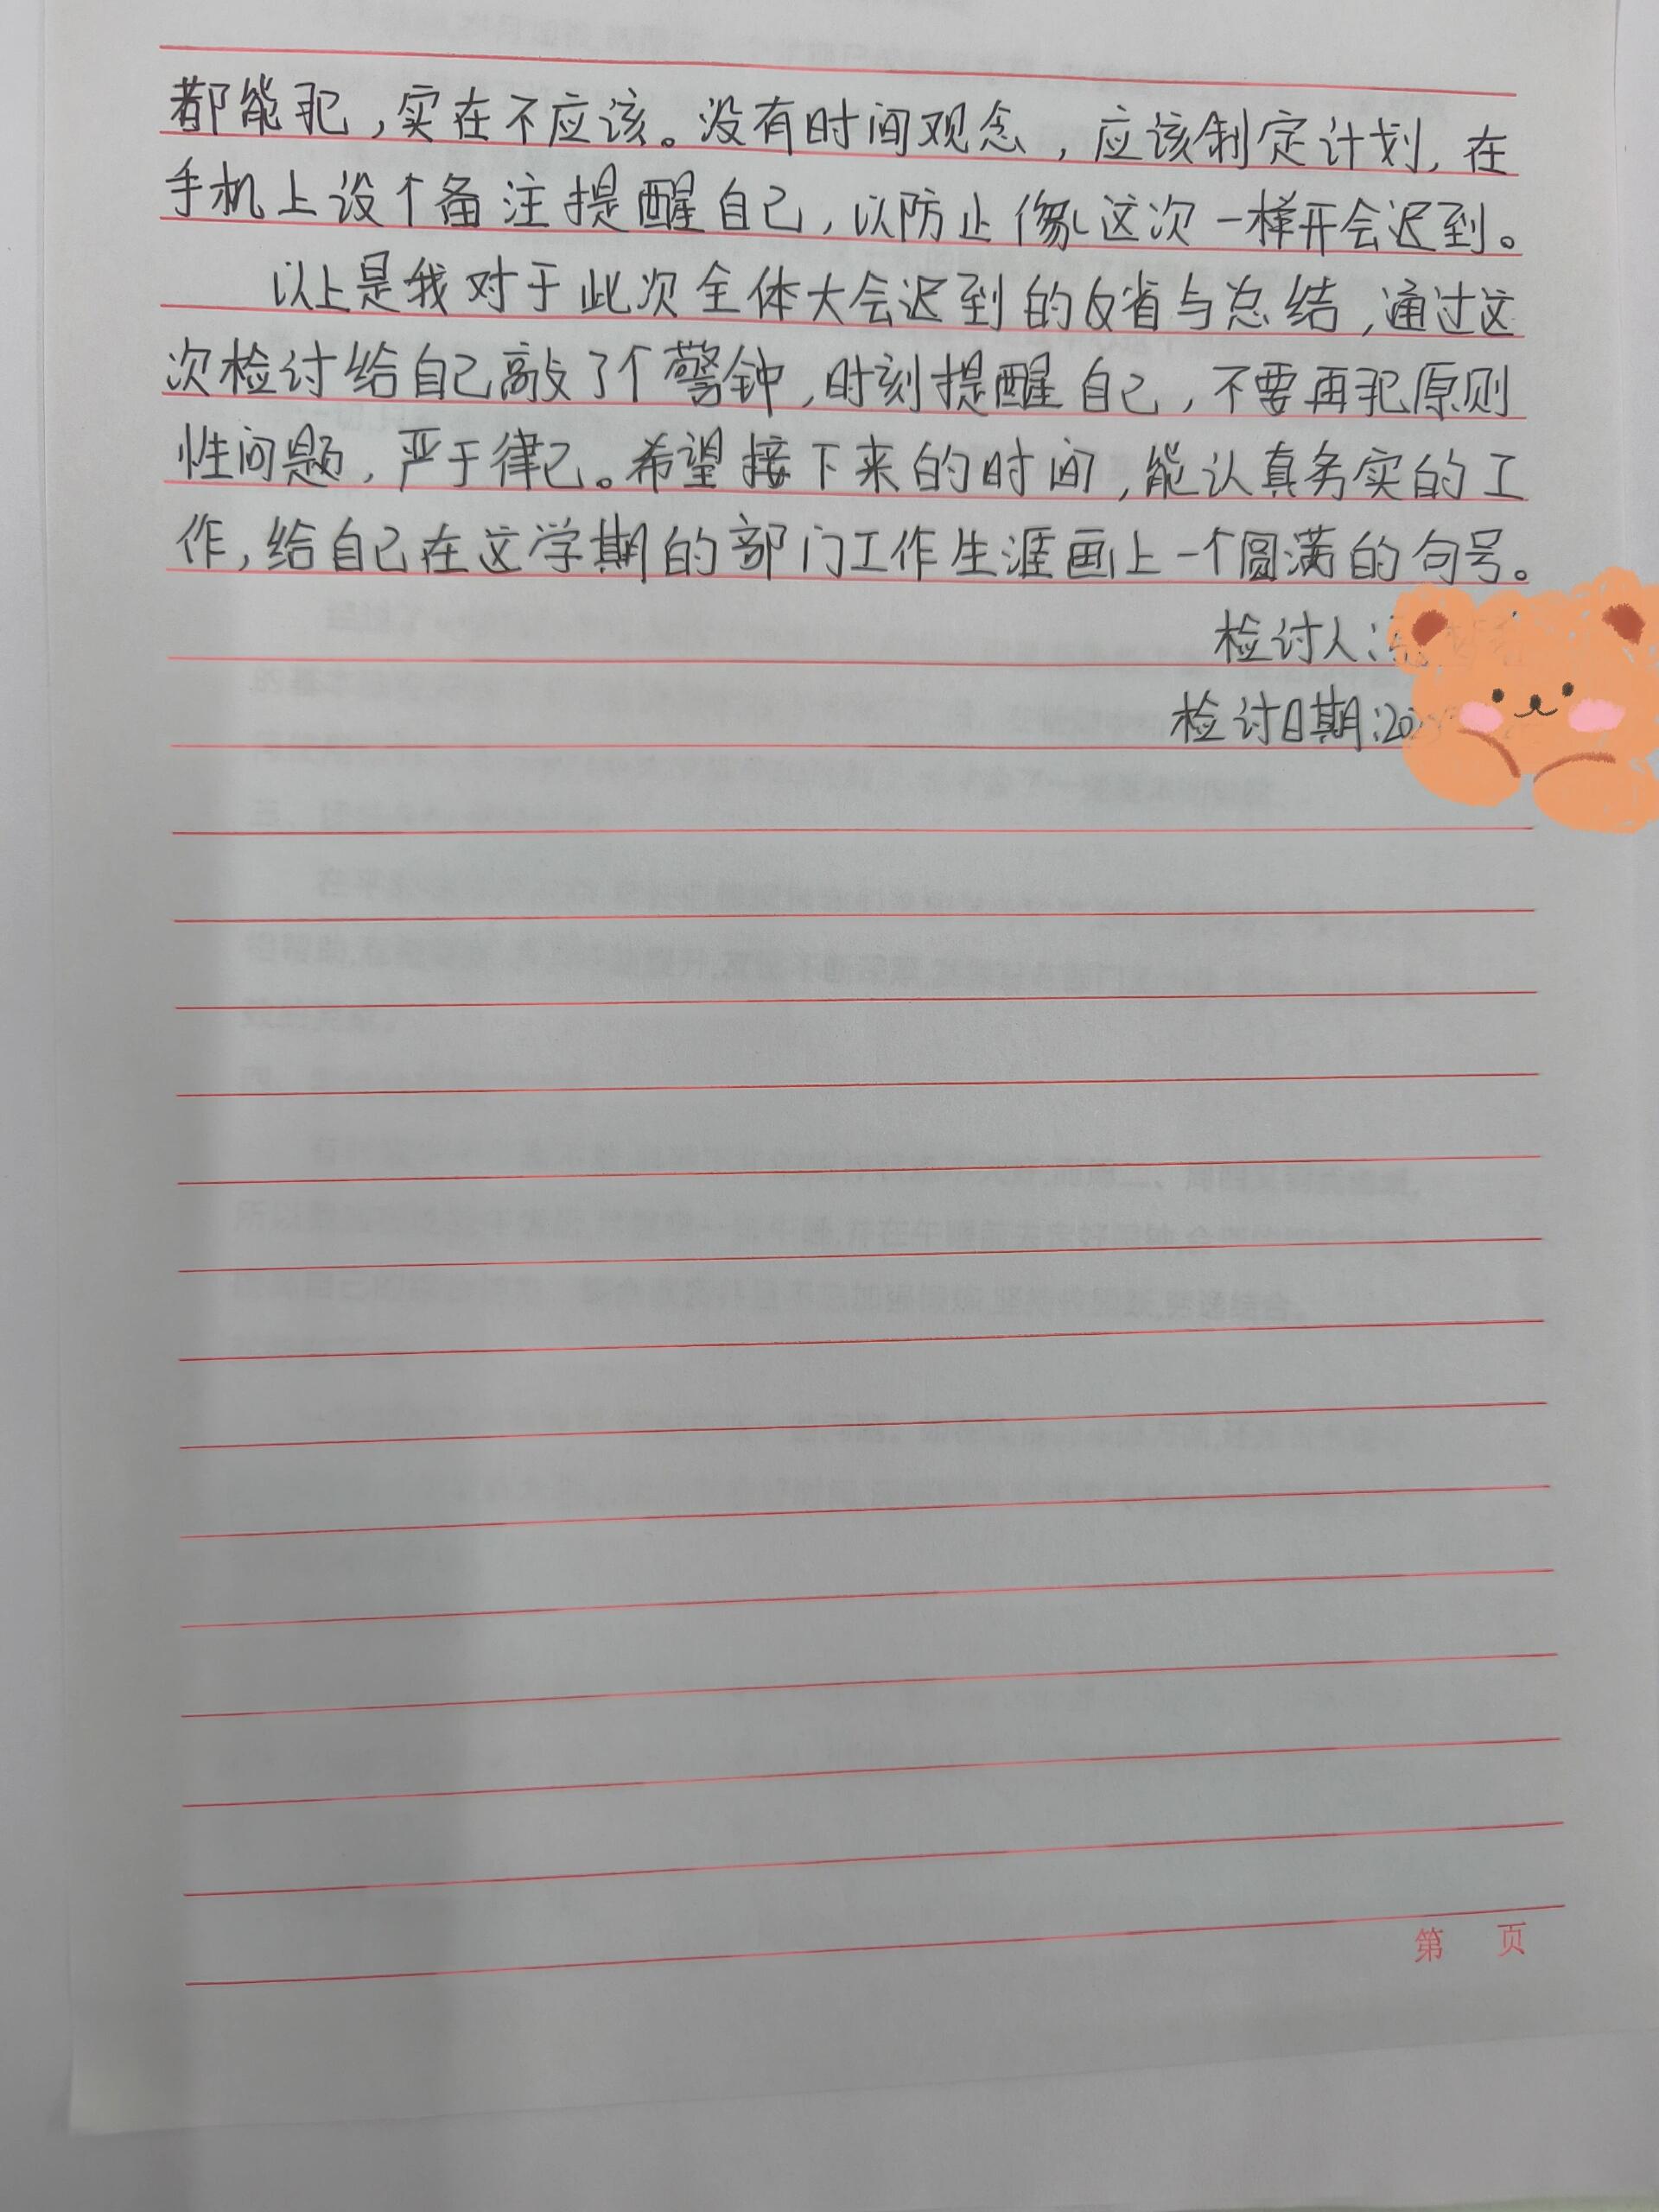 都能犯，实在不应该。没有时间观念，应该制定计划，在
手机上设个备注提醒自己，以防止像这次一样开会迟到。
以上是我对于此次全体大会迟到的反省与总结，通过这
次检讨给自己敲了个警钟，时刻提醒自己，不要再犯原则
性问题，严于律己。希望接下来的时间，能认真务实的工
作，给自己在这学期的部门工作生涯画上一个圆满的句号。
检讨人：
检讨日期：202
第 页